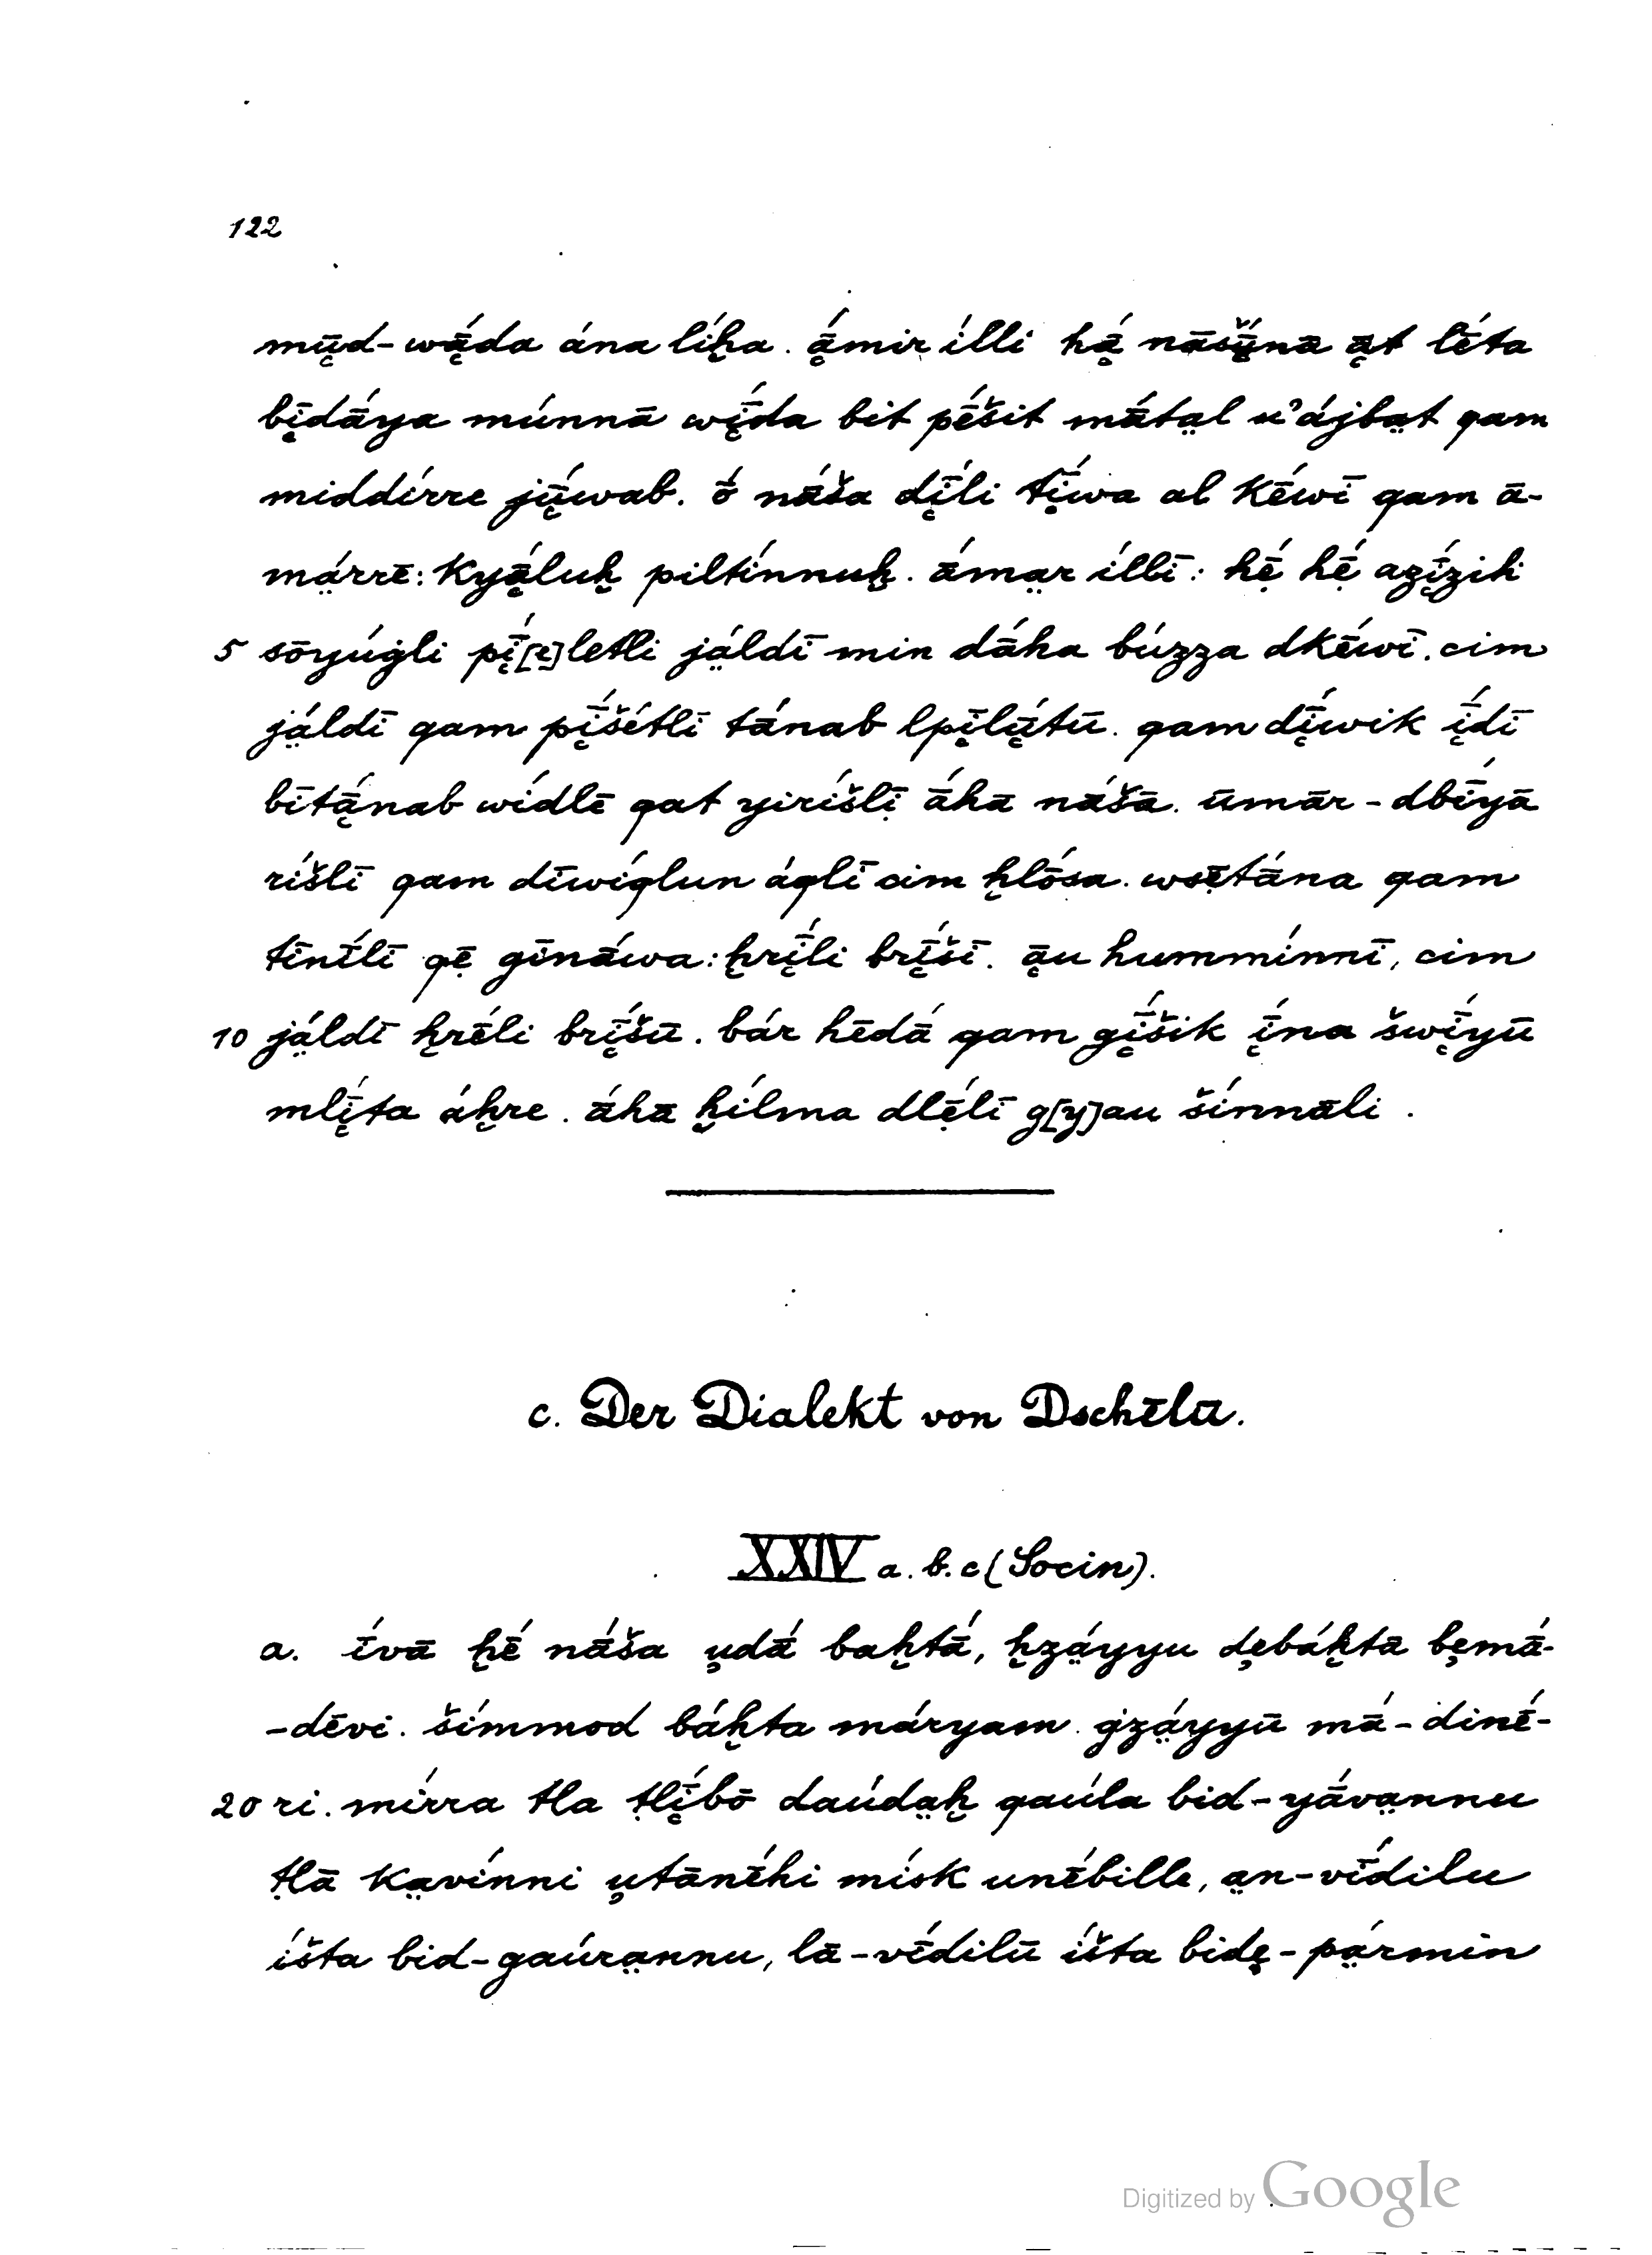 122
mų̄d-wą̄́da ána líḫa. ą̄́mir ílli hą̄́ nāšų̄́nā ą̄t lḗta
bį̄dā́ya múnnā wį̄́da bit pḗšit mā́ta̤l u'ájba̤t qam
middírre jų̄́wab. ṓ nā́ša dį̄́li tį̄́wa al Kḗwī qam ā-
má̤rrē: Kyą̄́luḫ piltínnuḫ. ā́ma̤r íllī: hẹ̄́ hẹ̄́ azį̄́zih
5 sōyúġli pį̄́[ẹ]letli já̤ldī min dā́ha búzza dKḗwī. cim
já̤ldī qam pį̄́šétlī tā́nab lpį̄lų̄́tū. qam dį̄́wik į̄́dī
bītą̄́nab wídlē qat yiríšlị̄ ā́hā nā́šā. ūmār-dbī́yā
ríšlī qam dīwíqlun áqlī cim ḫlṓsa. wsẹ̄tā́na qam
tīnī́lī qẹ̄ gīnā́wa: ḫrį̄́li brį̄́šī. ą̄u hummínnī, cim
10 já̤ldī ḫrḗli brį̄́šū. bár hēdā́ qam gį̄́šik į̄́na šwį̄́yū
mlį̄́ta áḫre. ā́hā ḫílma dlẹ̄́lī g[y]au šínnāli.
c. Der Dialekt von Dschēlū.
XXIV a. b. c (Socin).
a. ī́vā ḫḗ nā́ša u̯dā́ baḫtā́, ḫzá̤yyu dębáḫtā bęmā́-
-dēvi. šímmod báḫta máryam. ġzá̤yyū mā-dinḗ-
20 ri. mírra tla ṭlį̄́bō daúda̤ḫ qaúla bid-yā́va̤nnu
ṭlā Ka̤vínni u̯tānḗhi mísk unḗbille, a̤n-vī́dilu
íšta bid-gaúra̤nnu, lā-vī́dilū íšta bidę-pá̤rmin
Digitized by Google